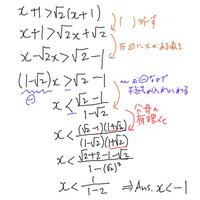 x+1>√2(x+1)
( )外す
x+1>√2x+√2
左辺にxがある項を
x-√2x>√2-1
(1-√2)x>√2-1
⊖
⊖なので
不等号が入れかわる
x<(√2-1)/(1-√2)
分母の
有理化
x<(√2-1)(1+√2)/(1-√2)(1+√2)
x<(√2+2-1-√2)/(1-(√2)²)
x<1/(1-2) ⇒Ans. x<-1